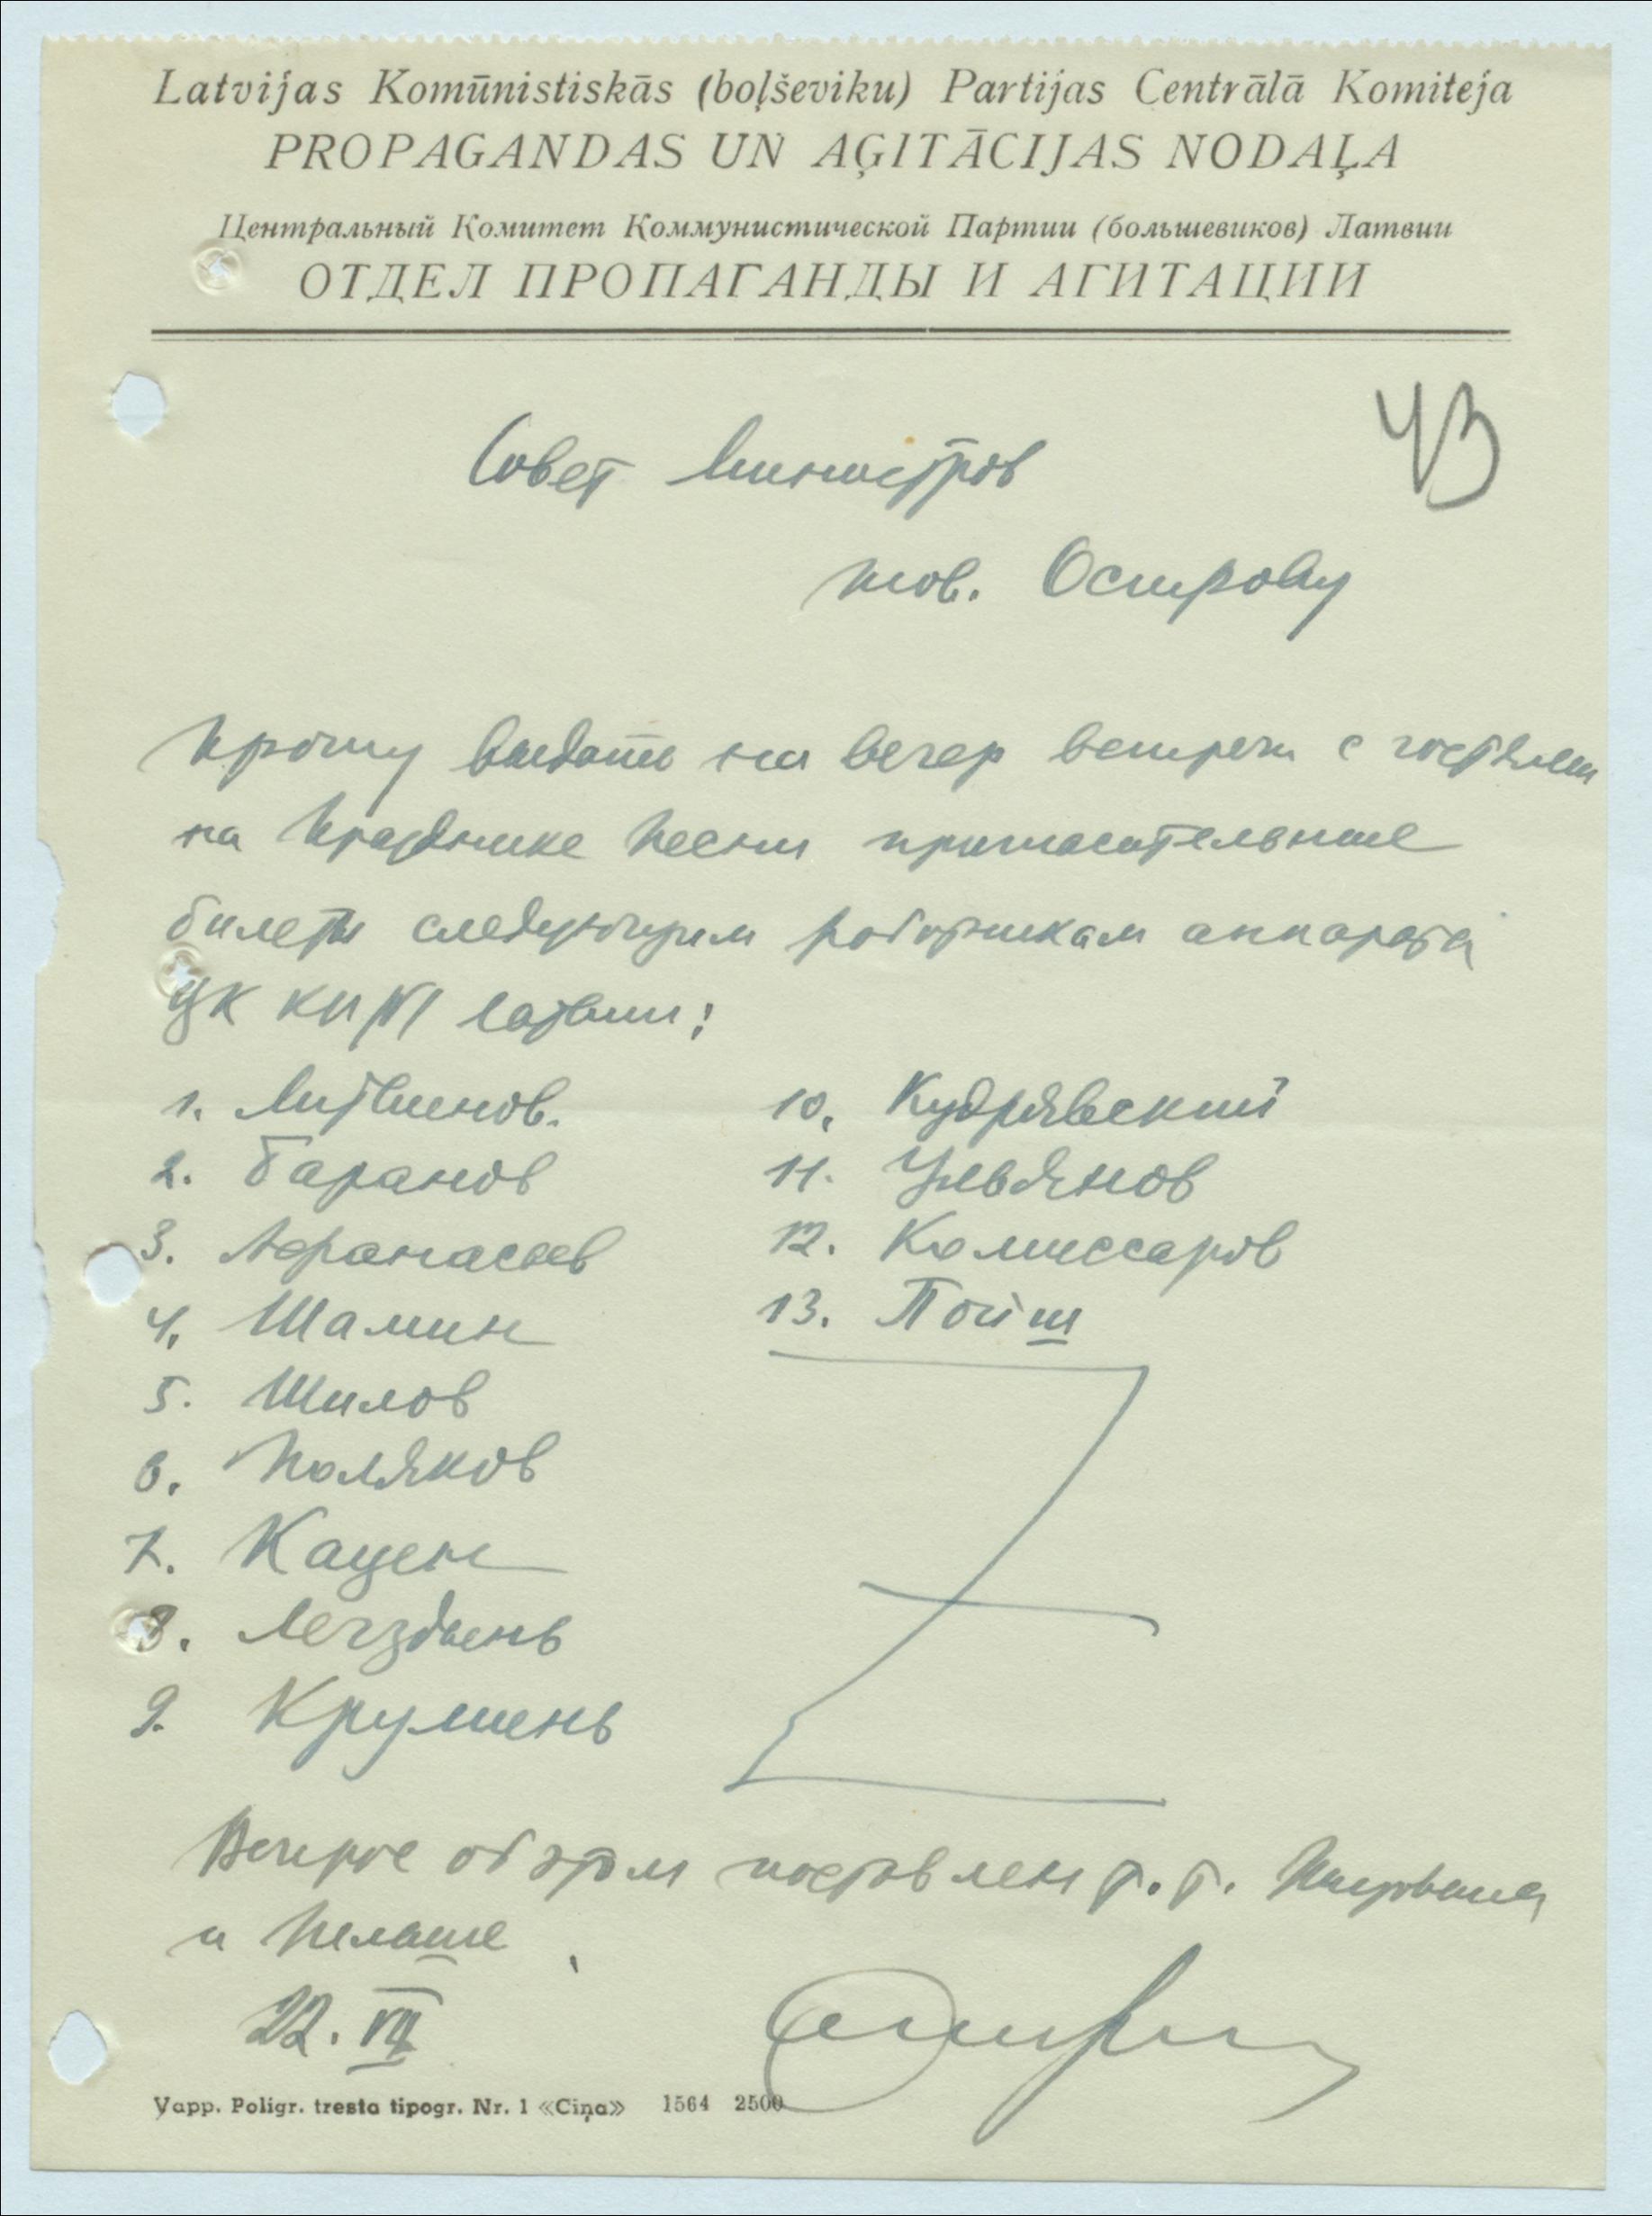 Latvijas Komūnistiskās (boļševiku) Partijas Centrālā Komiteja
PROPAGANDAS UN AĢITĀCIJAS NODAĻA
Центральный Комитет Коммунистической Партии (большевиков) Латвии
ОТДЕЛ ПРОПАГАНДЫ И АГИТАЦИИ
43
Совет Министров
тов. Острову
Прошу выдать на вечер встречи с гостями
на Празднике Песни пригласительные
билеты следующим работникам аппарата
ЦК КП/б/ Латвии:
1. Литвинов.
2. Баранов
3. Афанасьев
4. Шамин
5. Шилов
6. Поляков
7. Кацен
8. Легздынь
9. Круминь
10. Кудрявский
11. Ульянов
12. Комиссаров
13. Пойш
Вопрос об этом поставлен т.т.
и Пельше
22. VII
Vapp. Poligr. tresta tipogr. Nr. 1 «Ciņa» 1564 2500